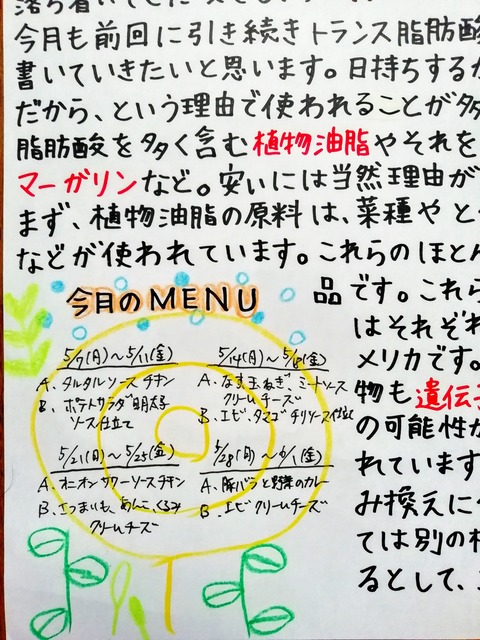 今月も前回に引き続きトランス脂肪酸
書いていきたいと思います。日持ちするか
だから、という理由で使われることが多
脂肪酸を多く含む植物油脂やそれを
マーガリンなど。安いには当然理由が
まず、植物油脂の原料は、菜種やと
などが使われています。これらのほとん
品です。これら
はそれぞれ
メリカです。
物も遺伝子
の可能性が
れています
み換えに
ては別の
るとして、
今月のMENU
5/7(月)〜5/11(金)
A. タルタルソースチキン
B. ポテトサラダ明太子
ソース仕立て
5/14(月)〜5/18(金)
A. なす玉ねぎ、ミートソース
クリームチーズ
B. エビ、タマゴチリソース仕立
5/21(月)〜5/25(金)
A. オニオンサワーソースチキン
B. さつまいも、あんこ、くるみ
クリームチーズ
5/28(月)〜6/1(金)
A. 豚バラと野菜のカレー
B. エビクリームチーズ